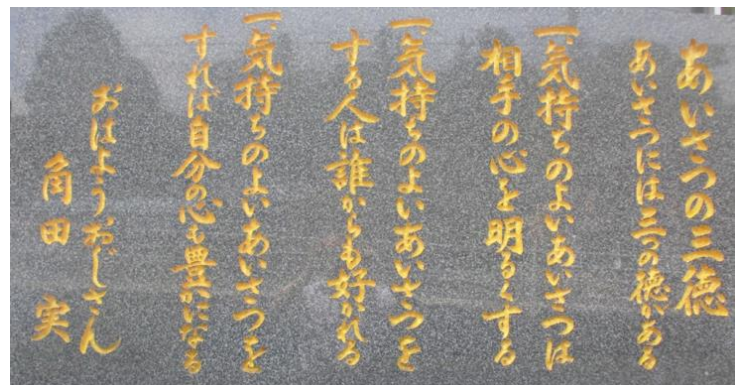 あいさつの三徳
あいさつには三つの徳がある
一、気持ちのよいあいさつは
相手の心を明るくする
一、気持ちのよいあいさつを
する人は誰からも好かれる
一、気持ちのよいあいさつを
すれば自分の心も豊かになる
おはようおじさん
角田 実